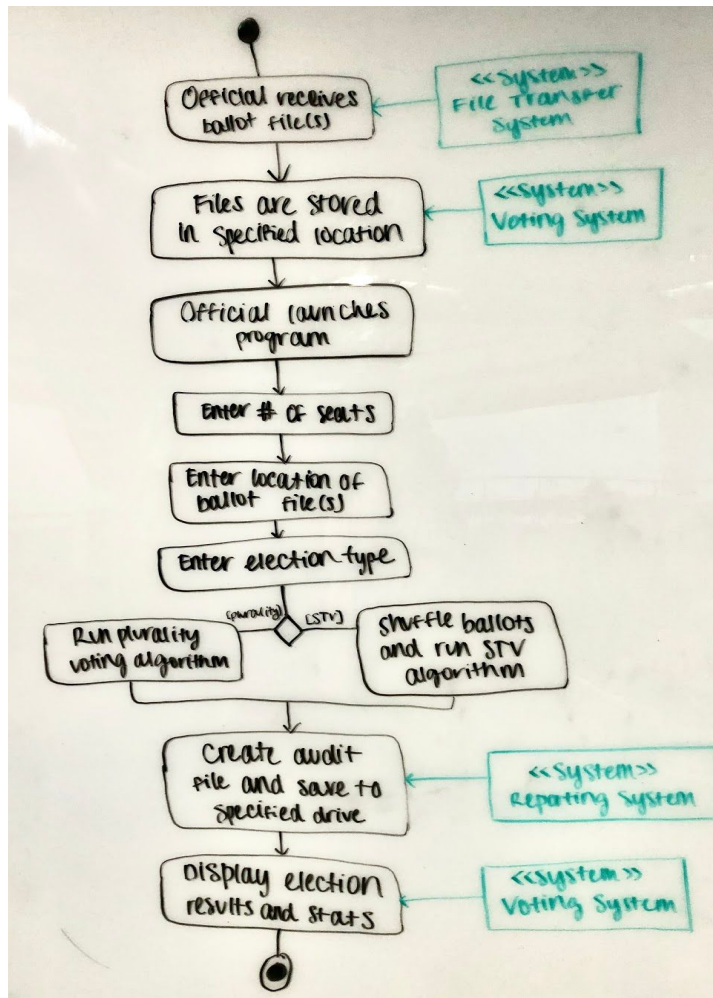 Official receives
ballot file(s)
<<System>>
File Transfer
System
Files are stored
in specified location
<<System>>
Voting System
Official launches
program
Enter # of seats
Enter location of
ballot file(s)
Enter election type
[plurality]
[STV]
Run plurality
voting algorithm
shuffle ballots
and run STV
algorithm
Create audit
file and save to
specified drive
<<System>>
Reporting System
Display election
results and stats
<<System>>
Voting System